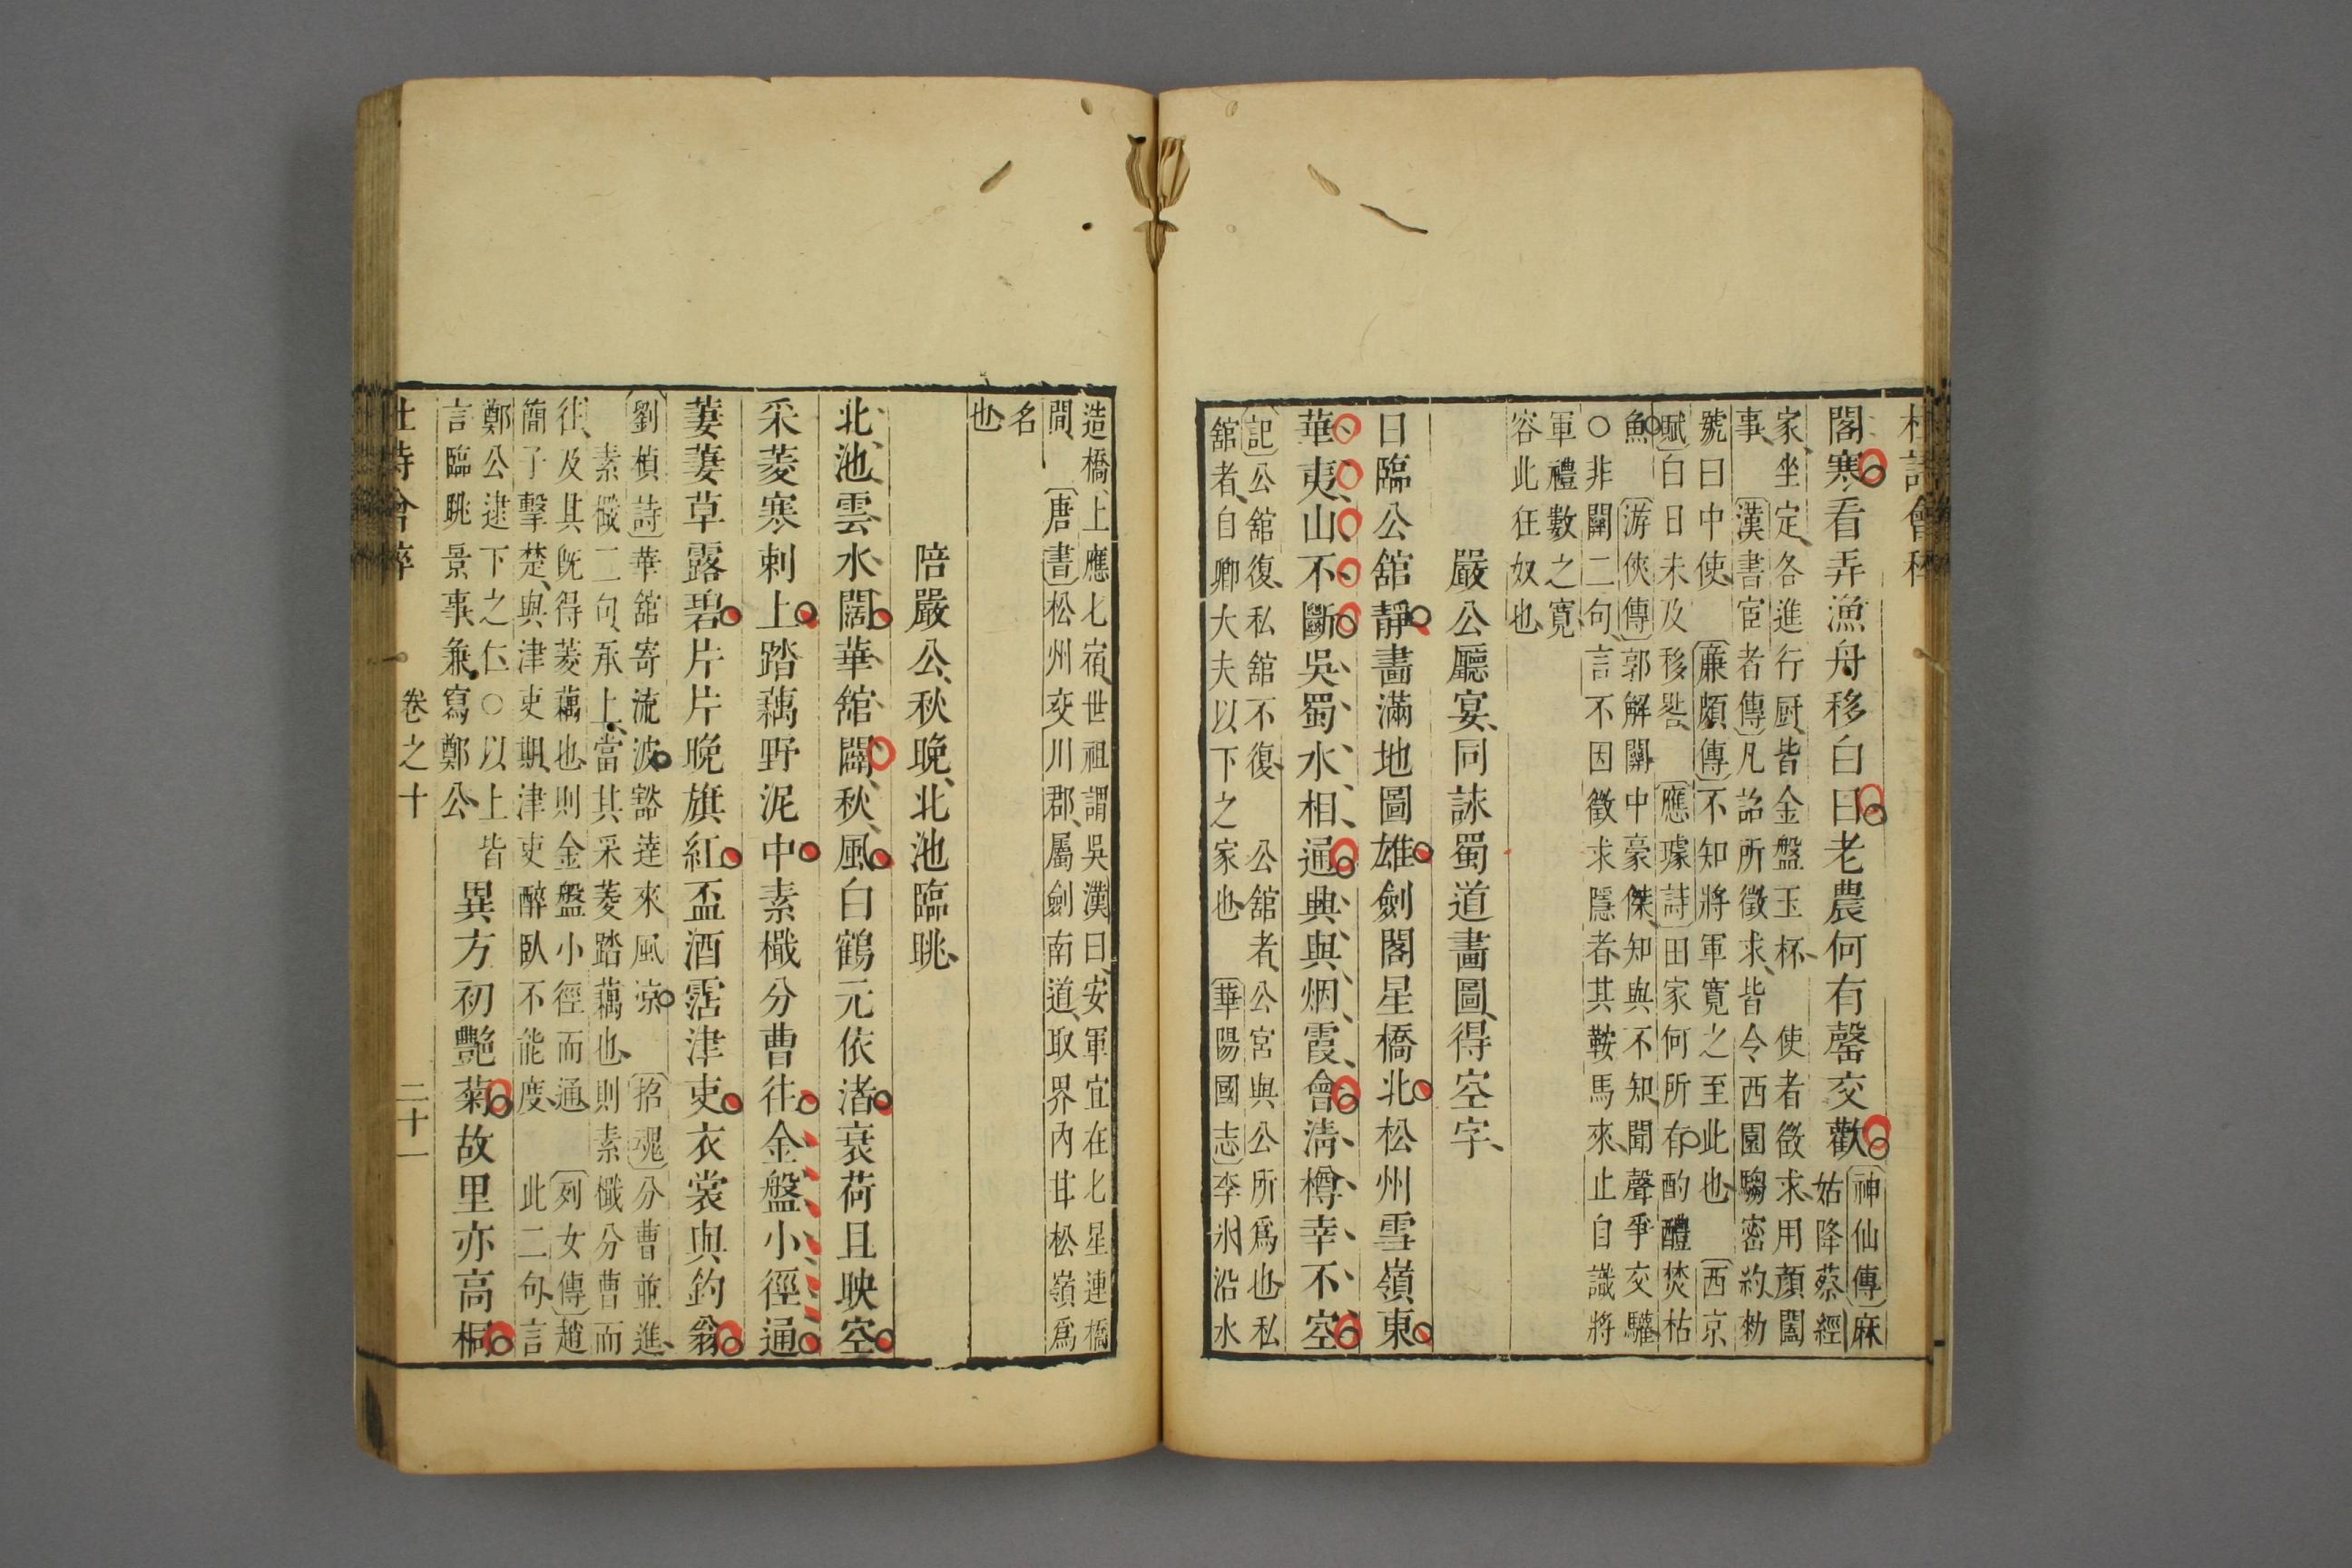 杜詩會稡
閣寒看弄漁舟移白日老農何有罄交歡
神仙傳麻
姑降蔡經
家坐定各進行厨皆金盤玉杯　使者徵求用顔闔
事漢書宦者傳凡詔所徵求皆令西園騶密約勑
號曰中使　廉頗傳不知將軍寬之至此也　西京
賦白日未及移晷　應璩詩田家何所有酌醴焚枯
魚　游俠傳郭解關中豪傑知與不知聞聲爭交驩
○非關二句言不因徵求隱者其鞍馬來止自識將
軍禮數之寬
容此狂奴也
嚴公廳宴同詠蜀道畫圖得空字
日臨公舘靜畵滿地圖雄劍閣星橋北松州雪嶺東
華夷山不斷吳蜀水相通興與烟霞會淸樽幸不空
記公舘復私舘不復　公舘者公宮與公所爲也私
舘者自卿大夫以下之家也　華陽國志李氷沿水
造橋上應七宿世祖謂吳漢曰安軍宜在七星連橋
間　唐書松州交川郡屬劍南道取界內甘松嶺爲
名
也
陪嚴公秋晚北池臨眺
北池雲水闊華舘闢秋風白鶴元依渚衰荷且映空
采菱寒刺上踏藕野泥中素檝分曹往金盤小徑通
萋萋草露碧片片晚旗紅盃酒霑津吏衣裳與釣翁
劉楨詩華舘寄流波豁達來風凉　招魂分曹並進
素檝二句承上當其采菱踏藕也則素檝分曹而
往及其旣得菱藕也則金盤小徑而通　列女傳趙
簡子擊楚與津吏期津吏醉臥不能度　此二句言
鄭公逮下之仁○以上皆
言臨眺景事兼寫鄭公
異方初艷菊故里亦高桐
杜詩會稡　卷之十　二十一